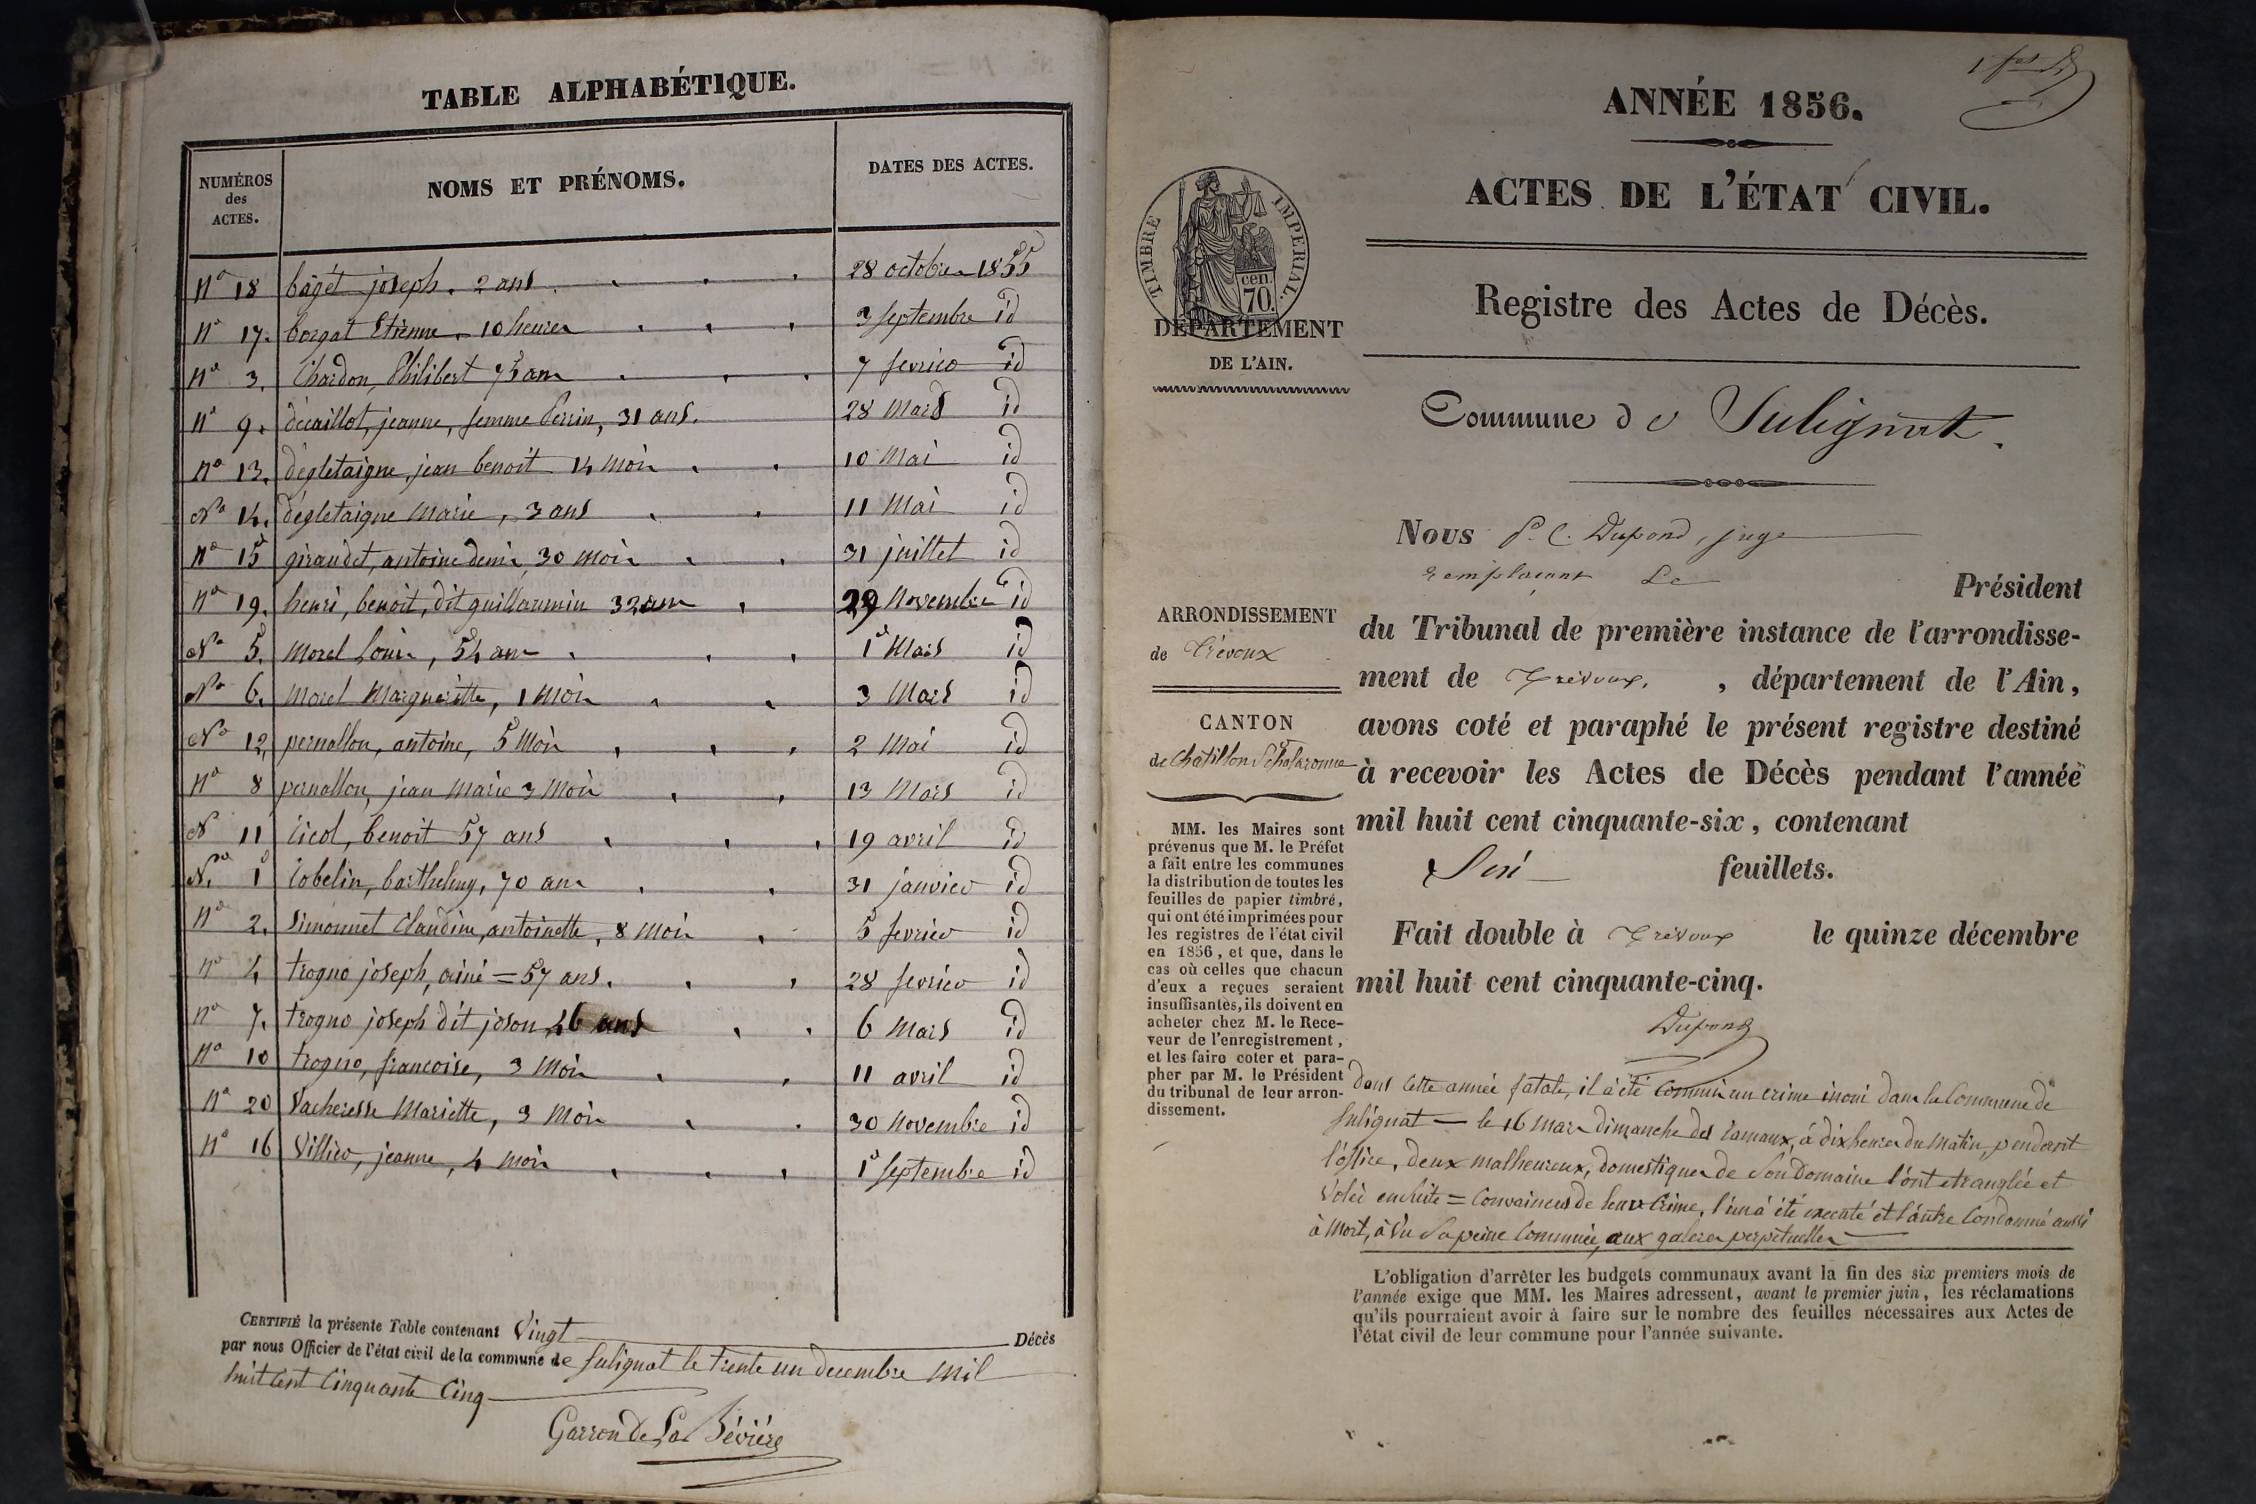 TABLE ALPHABÉTIQUE.
NUMÉROS des ACTES. NOMS ET PRÉNOMS. DATES DES ACTES.
n° 18 bagét joseph. 2 ans 28 octobre 1855
n° 17. borgat Etienne. 10 heures 3 septembre id
n° 3. Chardon, Philibert 75 ans 7 fevrier id
n° 9. décaillot, jeanne, femme Perrin, 31 ans. 28 Mars id
n° 13. dégletaigne, jean benoit 14 mois 10 Mai id
N° 14. dégletaigne Marie, 3 ans 11 Mai id
n° 15 giraudet, antoine denis, 30 mois 31 juillet id
n° 19. henri, benoit, dit guillaumin 32 ans 29 Novembre id
N° 5. Morel Louis, 54 ans 1er Mars id
N° 6. Morel Marguéritte, 1 mois 3 Mars id
N° 12, pernollon, antoine, 5 Mois 2 Mai id
n° 8 pernollon, jean Marie 3 Mois 13 Mars id
N 11 benoit 57 ans 19 avril id
N. 1 barthelmy, 70 ans 31 janvier id
n° 2. Simonnet Claudine, antoinette, 8 Mois 5 fevrier id
n° 4 trogno joseph, ainé = 57 ans. 28 fevrier id
n° 7. trogno joseph dit joson 46 ans 6 Mars id
n° 10 trogno, francoise, 3 Mois 11 avril id
n° 20 Vacheresse Mariette, 3 Mois 30 Novembre id
n° 16 Villier, jeanne, 4 mois 1er septembre id
CERTIFIÉ la présente Table contenant Vingt Décès
par nous Officier de l'état civil de la commune de Sulignat le trente un decembre Mil
huit Cent Cinquante Cinq
Garron de La Bévière
ANNÉE 1856.
ACTES DE L'ÉTAT CIVIL.
TIMBRE IMPERIAL.
cen.
70.
Registre des Actes de Décès.
DÉPARTEMENT
DE L'AIN.
Commune de Sulignat.
Nous P. C. Dupond, juge
remplaçant Le Président
du Tribunal de première instance de l'arrondisse-
ment de Trévoux, , département de l'Ain,
avons coté et paraphé le présent registre destiné
à recevoir les Actes de Décès pendant l'année
mil huit cent cinquante-six, contenant
feuillets.
Fait double à Trévoux le quinze décembre
mil huit cent cinquante-cinq.
Dupond
ARRONDISSEMENT
de Trévoux
CANTON
de Chatillon
MM. les Maires sont
prévenus que M. le Préfet
a fait entre les communes
la distribution de toutes les
feuilles de papier timbré,
qui ont été imprimées pour
les registres de l'état civil
en 1856, et que, dans le
cas où celles que chacun
d'eux a reçues seraient
insuffisantes, ils doivent en
acheter chez M. le Rece-
veur de l'enregistrement,
et les faire coter et para-
pher par M. le Président
du tribunal de leur arron-
dissement.
dans Cette année fatale, il a été Commis un crime inoui dans la Commune de
Sulignat — le 16 Mars dimanche des rameaux, à dix heures du Matin, pendant
l'office, deux malheureux, domestiques de Son Domaine l'ont etranglée et
Volée ensuite = Convaincus de leur Crime, l'un a été executé et l'autre Condamné aussi
à Mort, a Vu Sa peine Commuée, aux galeres perpétuelles
L'obligation d'arrêter les budgets communaux avant la fin des six premiers mois de
l'année exige que MM. les Maires adressent, avant le premier juin, les réclamations
qu'ils pourraient avoir à faire sur le nombre des feuilles nécessaires aux Actes de
l'état civil de leur commune pour l'année suivante.